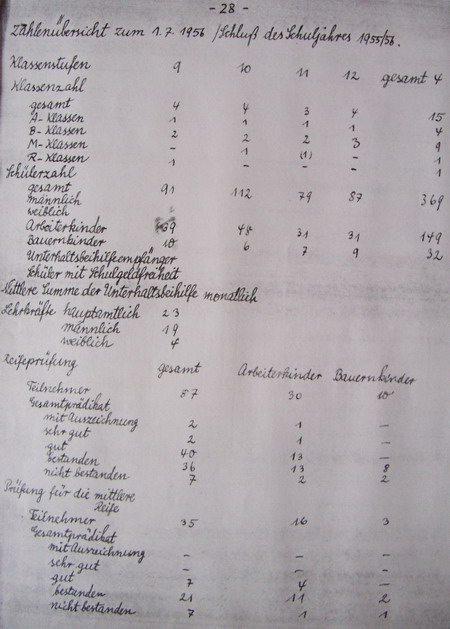 - 28 -
Zahlenübersicht zum 1.7.1956 /Schluß des Schuljahres 1955/56.
Klassenstufen 9 10 11 12 gesamt 4
Klassenzahl
gesamt 4 4 3 4 15
A-Klassen 1 1 1 1 4
B-Klassen 2 2 2 3 9
M-Klassen - 1 (1) - 1
R-Klassen 1 - - - 1
Schülerzahl
gesamt 91 112 79 87 369
männlich
weiblich
Arbeiterkinder 39 48 31 31 149
Bauernkinder 10 6 7 9 32
Unterhaltsbeihilfeempfänger
Schüler mit Schulgeldfreiheit
Mittlere Summe der Unterhaltsbeihilfe monatlich
Lehrkräfte hauptamtlich 23
männlich 19
weiblich 4
Reifeprüfung gesamt Arbeiterkinder Bauernkinder
Teilnehmer 87 30 10
Gesamtprädikat
mit Auszeichnung 2 1 -
sehr gut 2 1 -
gut 40 13 -
bestanden 36 13 8
nicht bestanden 7 2 2
Prüfung für die mittlere
Reife
Teilnehmer 35 16 3
Gesamtprädikat
mit Auszeichnung - - -
sehr gut - - -
gut 7 4 -
bestanden 21 11 2
nicht bestanden 7 1 1